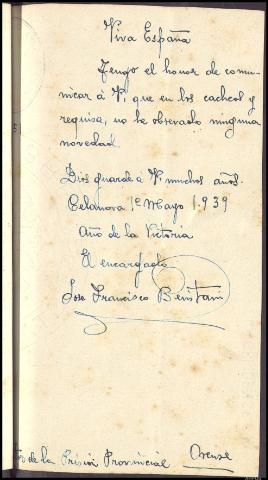 Viva España
Tengo el honor de comu-
nicar á V, que en los cacheos y
requisa, no he observado ninguna
novedad.
Dios guarde á V. muchos años.
Celanova 1º Mayo 1.939
Año de la Victoria
El encargado
Jose Francisco
de la Prision Provincial Orense